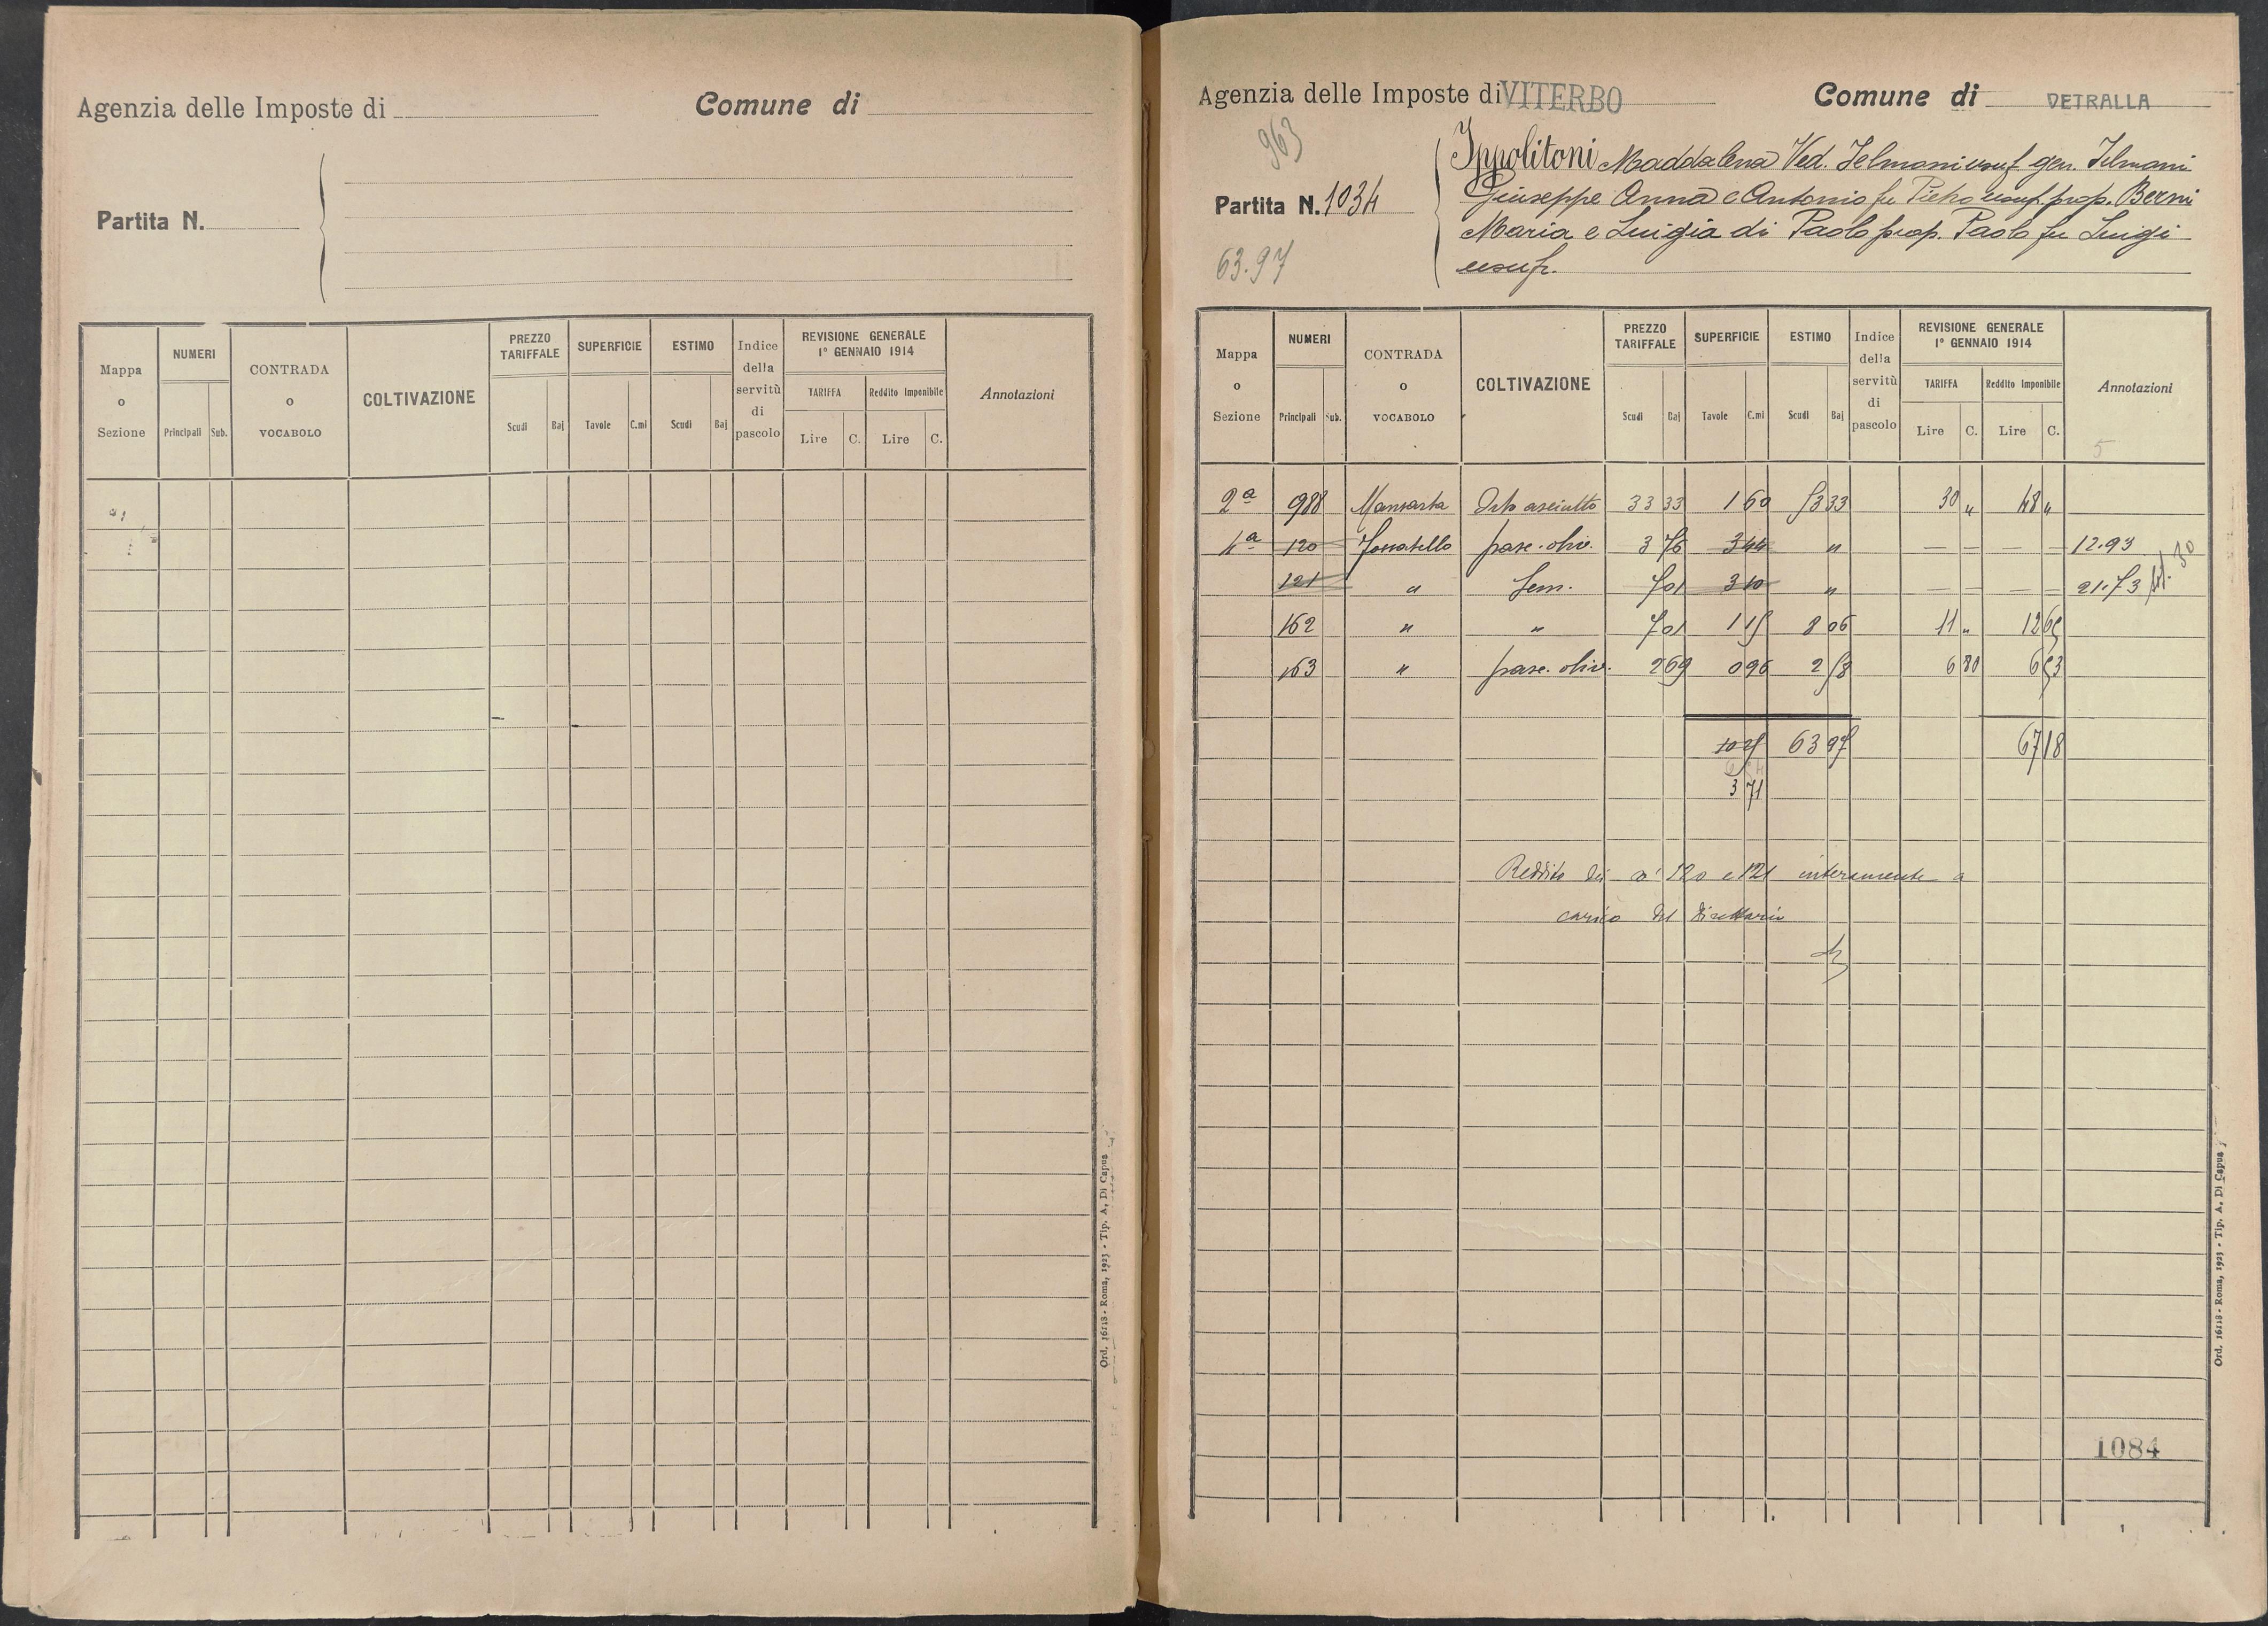 Agenzia delle Imposte di
Comune di
Partita N.
Mappa o Sezione
NUMERI
Principali Sub.
CONTRADA o VOCABOLO
COLTIVAZIONE
PREZZO TARIFFALE
Scudi Baj
SUPERFICIE
Tavole C.mi
ESTIMO
Scudi Baj
Indice della servitù di pascolo
REVISIONE GENERALE
1° GENNAIO 1914
TARIFFA Reddito Imponibile
Lire C. Lire C.
Annotazioni
Ord. 16118 - Roma, 1923 - Tip. A. Di Capua
Agenzia delle Imposte di VITERBO
Comune di VETRALLA
963
Partita N. 1034
63.97
Ippolitoni Maddalena Ved. Telmoni usuf. gen. Telmoni
Giuseppe Anna e Antonio fu Pietro usuf. prop. Berni
Maria e Luigia di Paolo prop. Paolo fu Luigi
usufr.
Mappa o Sezione
NUMERI
Principali Sub.
CONTRADA o VOCABOLO
COLTIVAZIONE
PREZZO TARIFFALE
Scudi Baj
SUPERFICIE
Tavole C.mi
ESTIMO
Scudi Baj
Indice della servitù di pascolo
REVISIONE GENERALE
1° GENNAIO 1914
TARIFFA Reddito Imponibile
Lire C. Lire C.
Annotazioni
5
2a 988 Orto asciutto 33 33 1 60 53 33 30 " 48 "
4a 120 Fossatello pasc. oliv. 3 76 3 44 " — — — — 12.93
121 " Sem. 7 01 3 10 " — — — — 21.73 30
162 " " 7 01 1 15 8 06 11 " 12 65
163 " pasc. oliv. 2 69 0 96 2 58 6 80 6 53
10 25 63 97 67 18
6 54
3 71
Reddito dei n. 120 e 121 interamente a
carico del direttario
1084
Ord. 16118 - Roma, 1923 - Tip. A. Di Capua